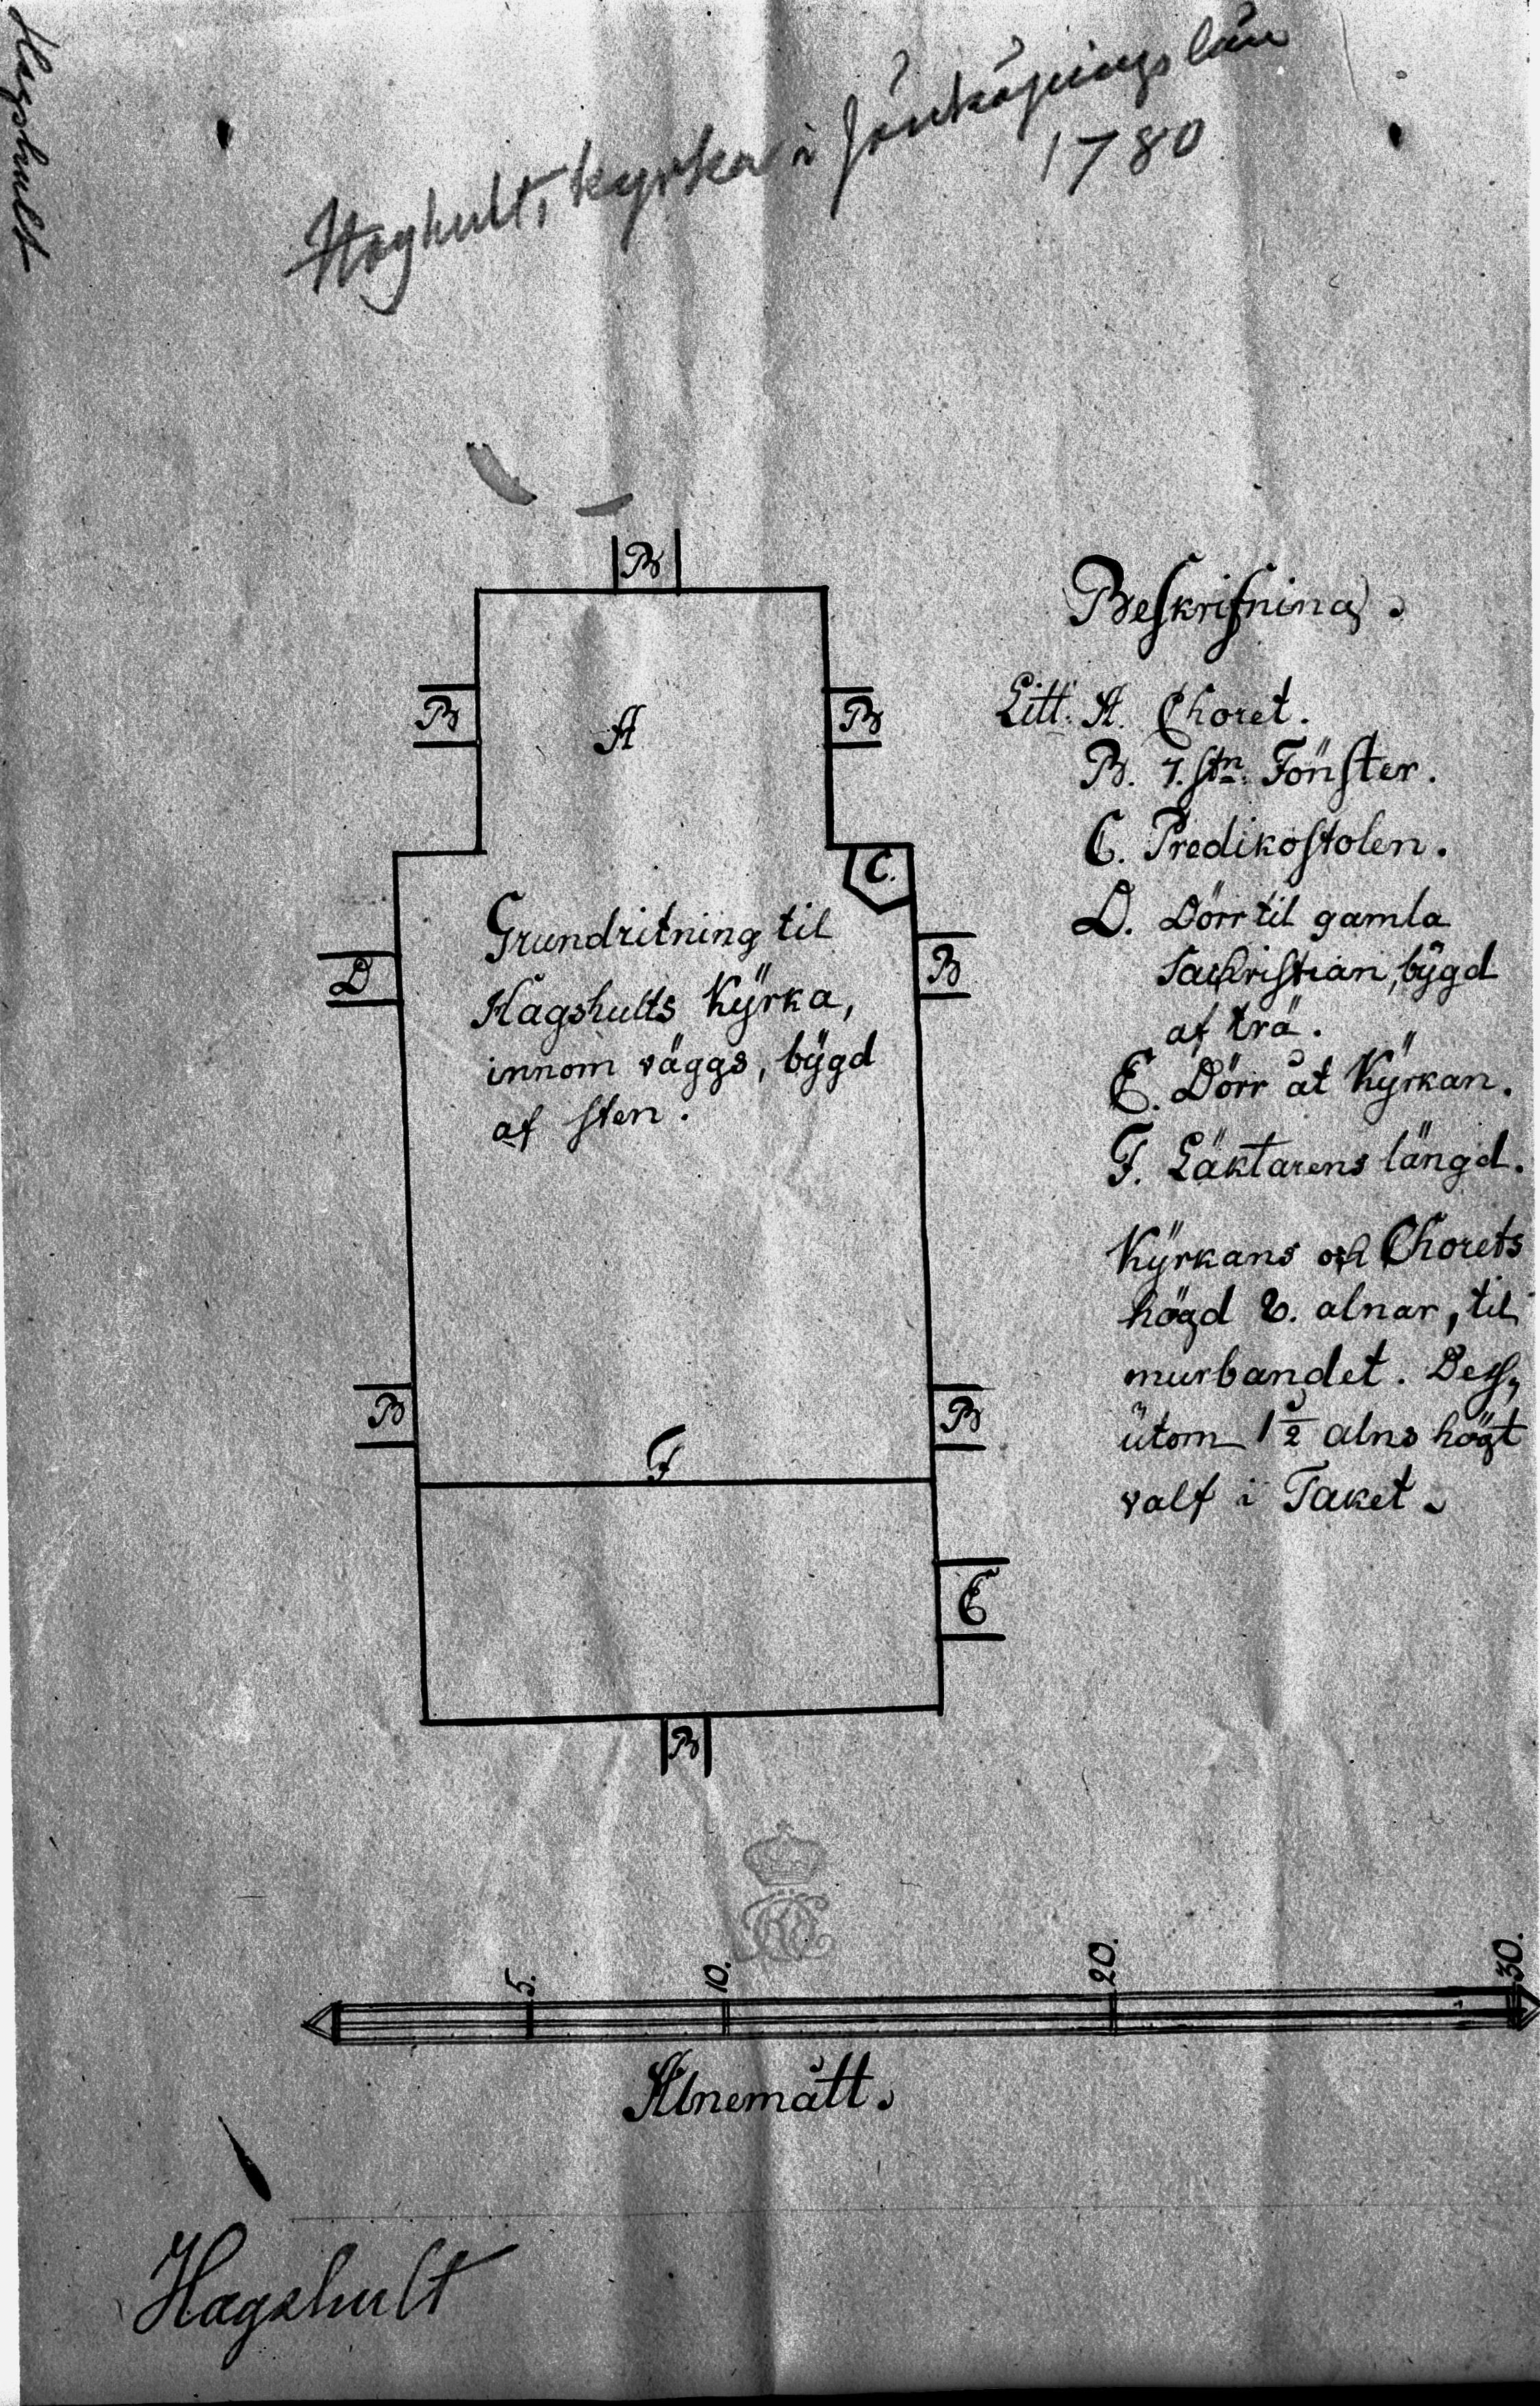 Hagshult
Haghult, kyrka i Jönköpings län
1780
B
B
A
B
C.
D
B
Grundritning til
Hagshults Kÿrka,
innom väggs, bÿgd
af sten.
B
B
F
E
B
Beskrifning.
Litt. A. Choret.
B. 7. stn. Fönster.
C. Predikostolen.
D. Dörr til gamla
Sackristian, bÿgd
af trä.
E. Dörr åt Kÿrkan.
F. Läktarens längd.
Kÿrkans och Chorets
högd 8. alnar, til
murbandet. Dess,
utom 1 1/2 alns högt
valf i Taket.
5. 10. 20. 30.
Alnemått.
Hagshult